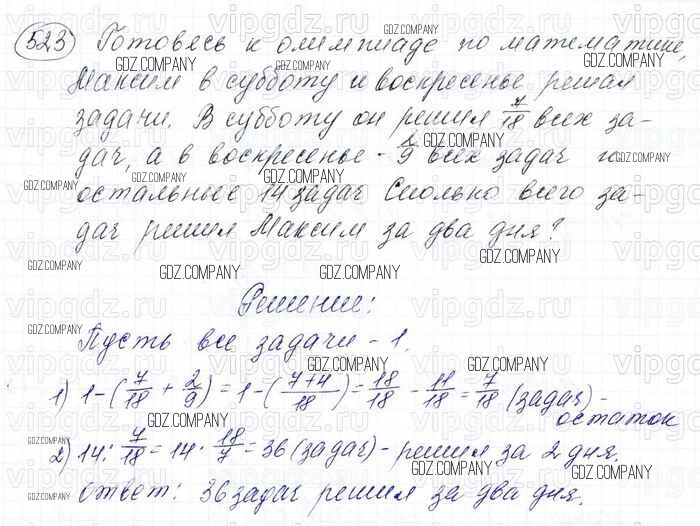 523 Готовясь к олимпиаде по математике,
Максим в субботу и воскресенье решал
задачи. В субботу он решил 7/18 всех за-
дач, а в воскресенье - 2/9 всех задач и
остальные 14 задач Сколько всего за-
дач решил Максим за два дня?
Решение:
Пусть все задачи - 1.
1) 1-(7/18 + 2/9) = 1-((7+4)/18) = 18/18 - 11/18 = 7/18 (задач) -
остаток
2) 14 : 7/18 = 14 · 18/7 = 36 (задач) - решил за 2 дня.
ответ: 36 задач решил за два дня.
GDZ.COMPANY
vipgdz.ru